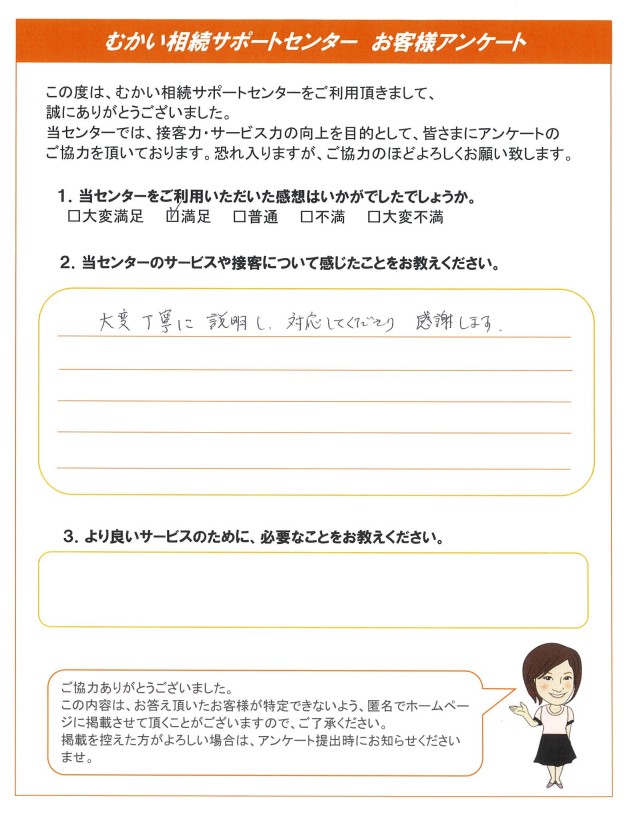 むかい相続サポートセンター　お客様アンケート
この度は、むかい相続サポートセンターをご利用頂きまして、
誠にありがとうございました。
当センターでは、接客力・サービス力の向上を目的として、皆さまにアンケートの
ご協力を頂いております。恐れ入りますが、ご協力のほどよろしくお願い致します。
１．当センターをご利用いただいた感想はいかがでしたでしょうか。
□大変満足　☑満足　□普通　□不満　□大変不満
２．当センターのサービスや接客について感じたことをお教えください。
大変丁寧に説明し、対応してくださり感謝します。
３．より良いサービスのために、必要なことをお教えください。
ご協力ありがとうございました。
この内容は、お答え頂いたお客様が特定できないよう、匿名でホームペー
ジに掲載させて頂くことがございますので、ご了承ください。
掲載を控えた方がよろしい場合は、アンケート提出時にお知らせください
ませ。